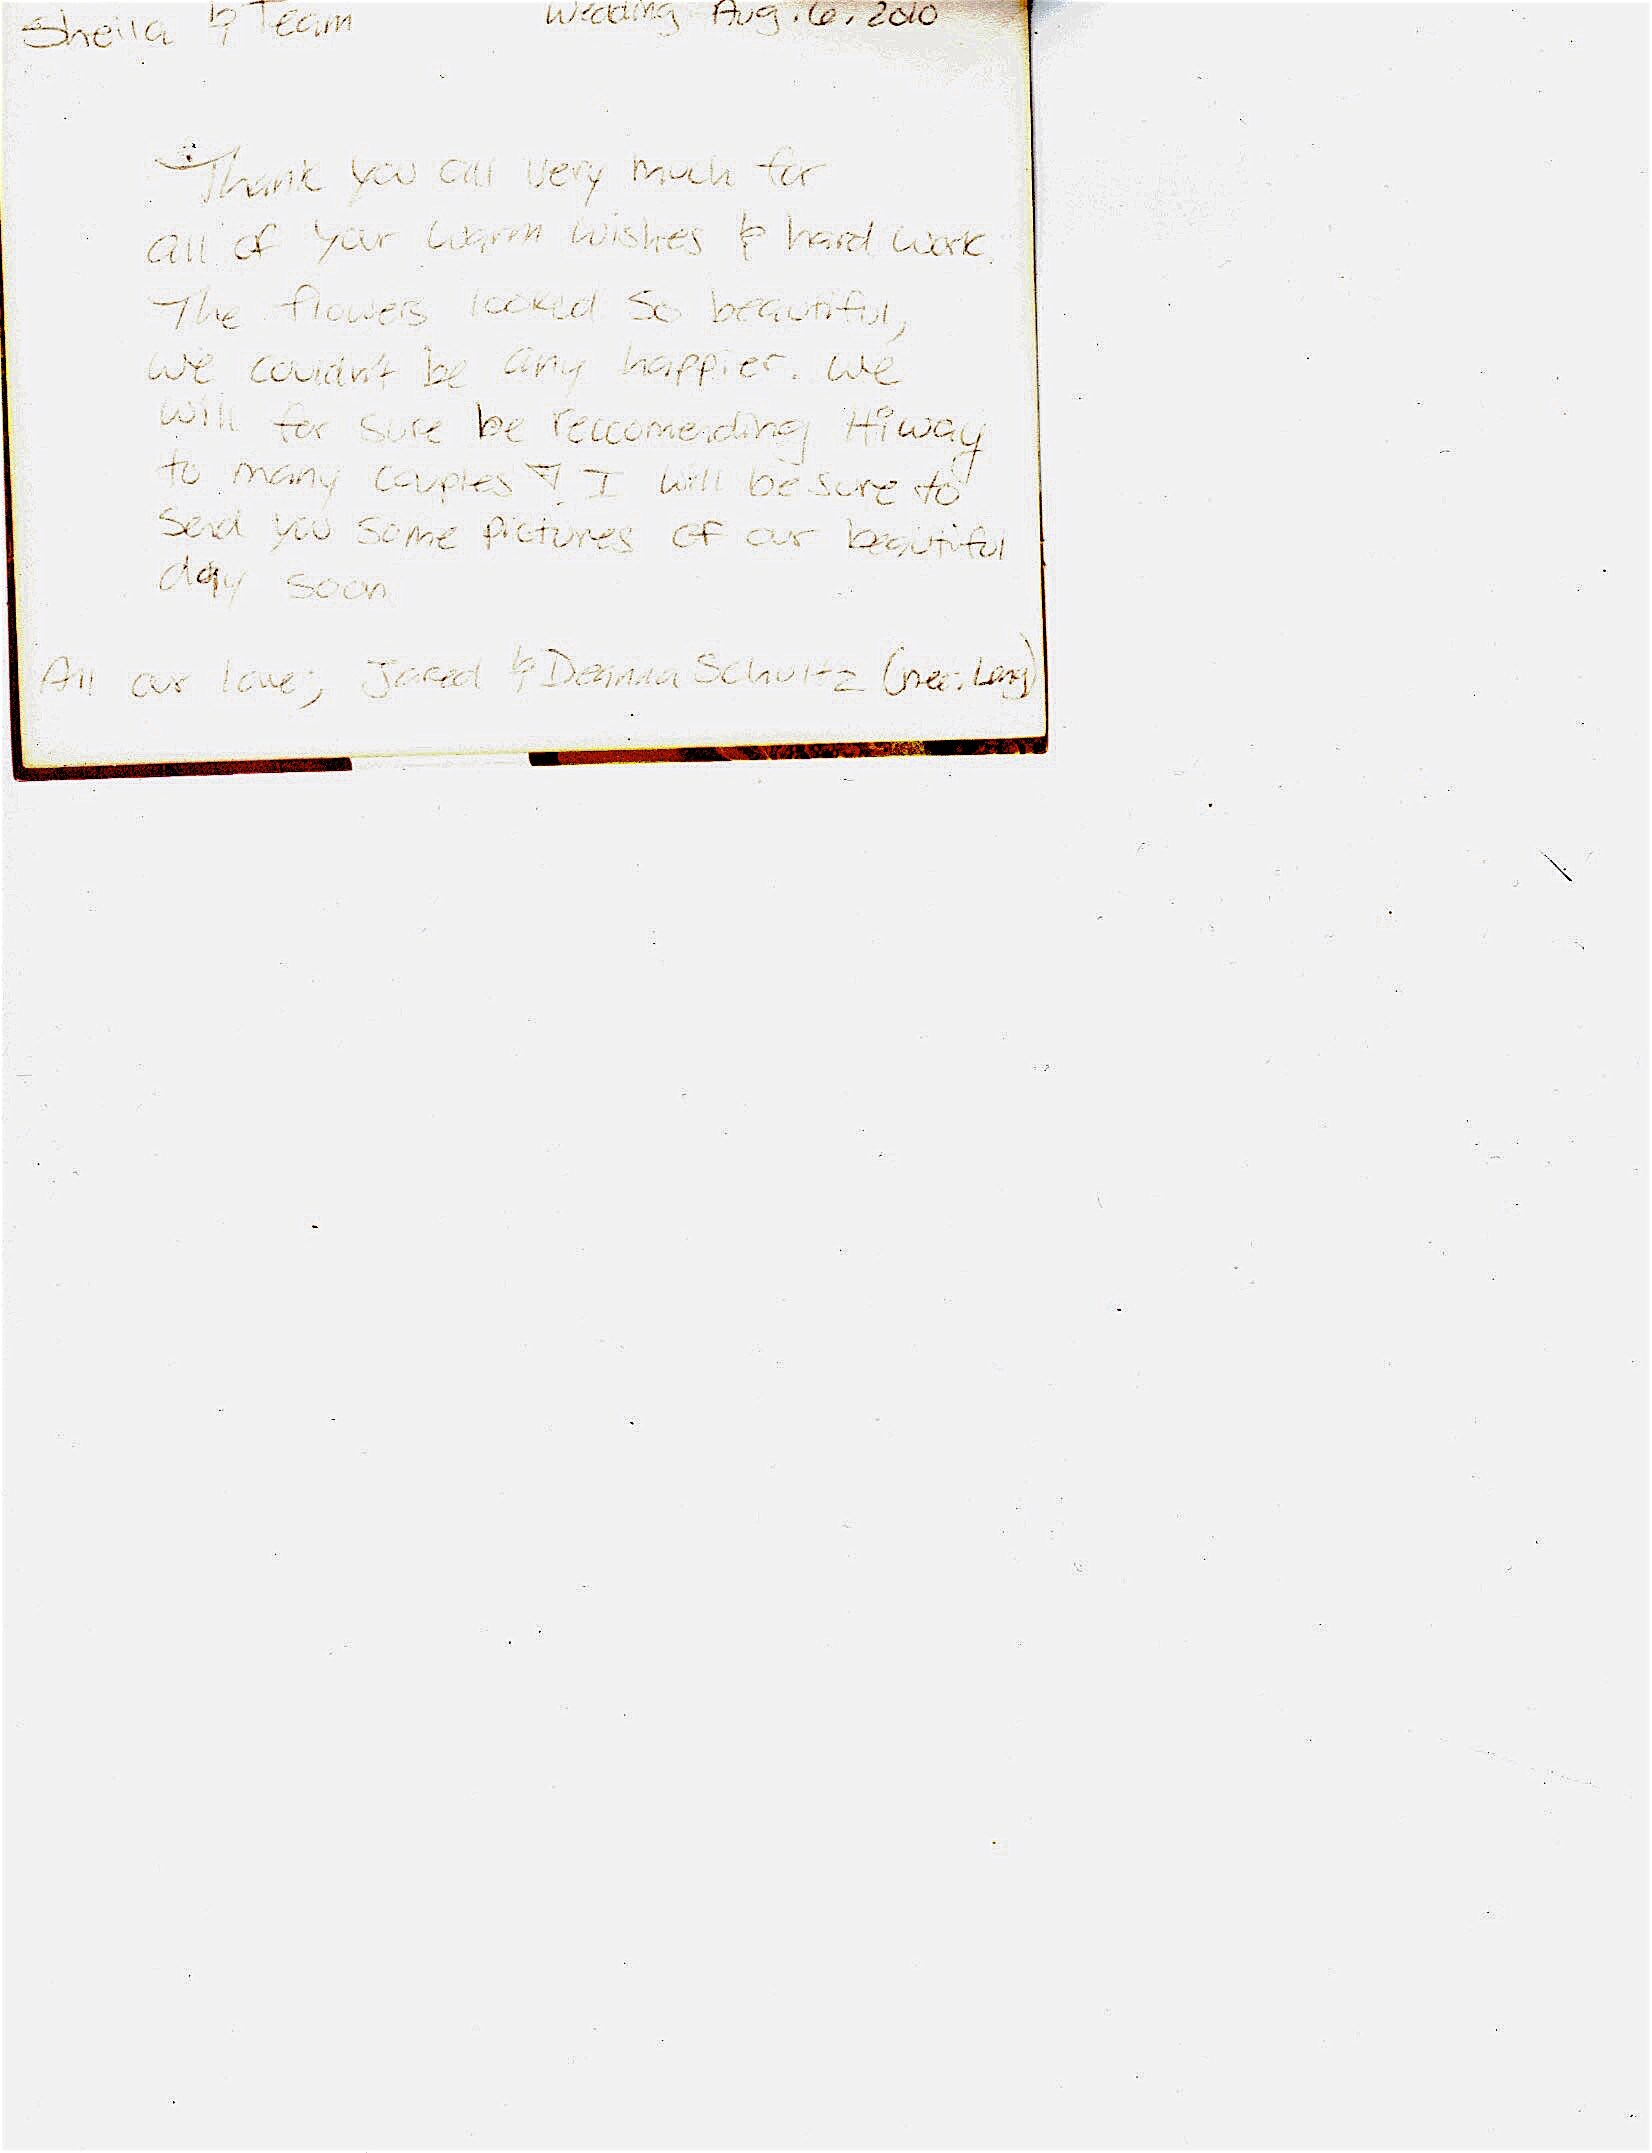 Sheila & Team Wedding Aug. 6, 2010
Thank you all very much for
all of your warm wishes & hard work.
The flowers looked so beautiful,
we couldn't be any happier. We
will for sure be reccomending Hiway
to many couples! I will be sure to
send you some pictures of our beautiful
day soon
All our love, Jared & Deanna Schultz (nee: Lang)